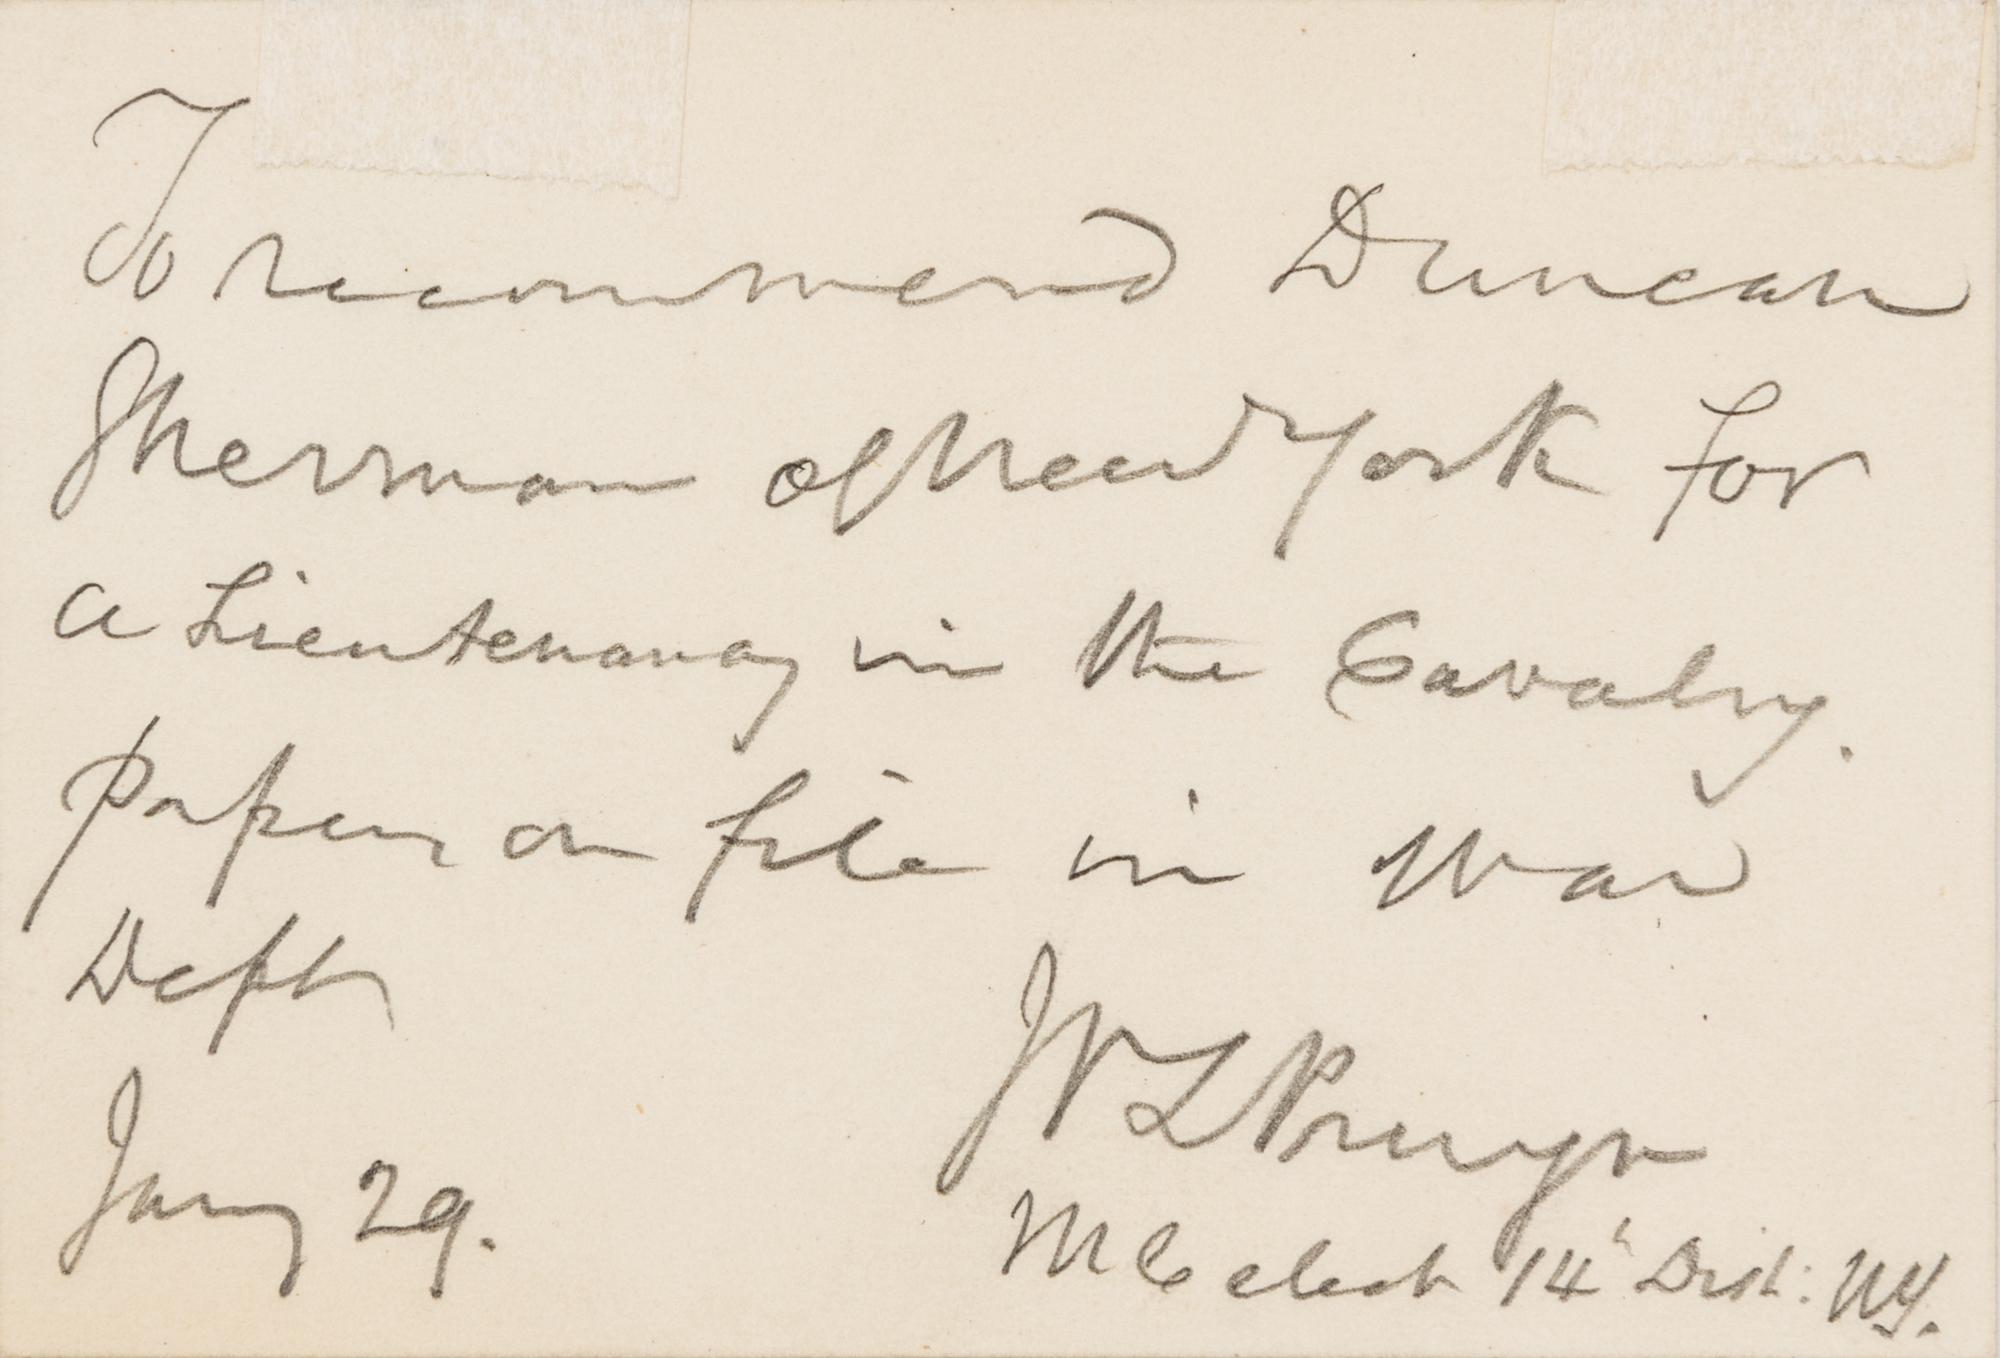 To recommend Duncan
Sherman of New York for
a Lieutenancy in the Cavalry.
Papers on file in War
Dept
Jany 29.
JVL Pruyn
MC elect 14th Dist: NY.